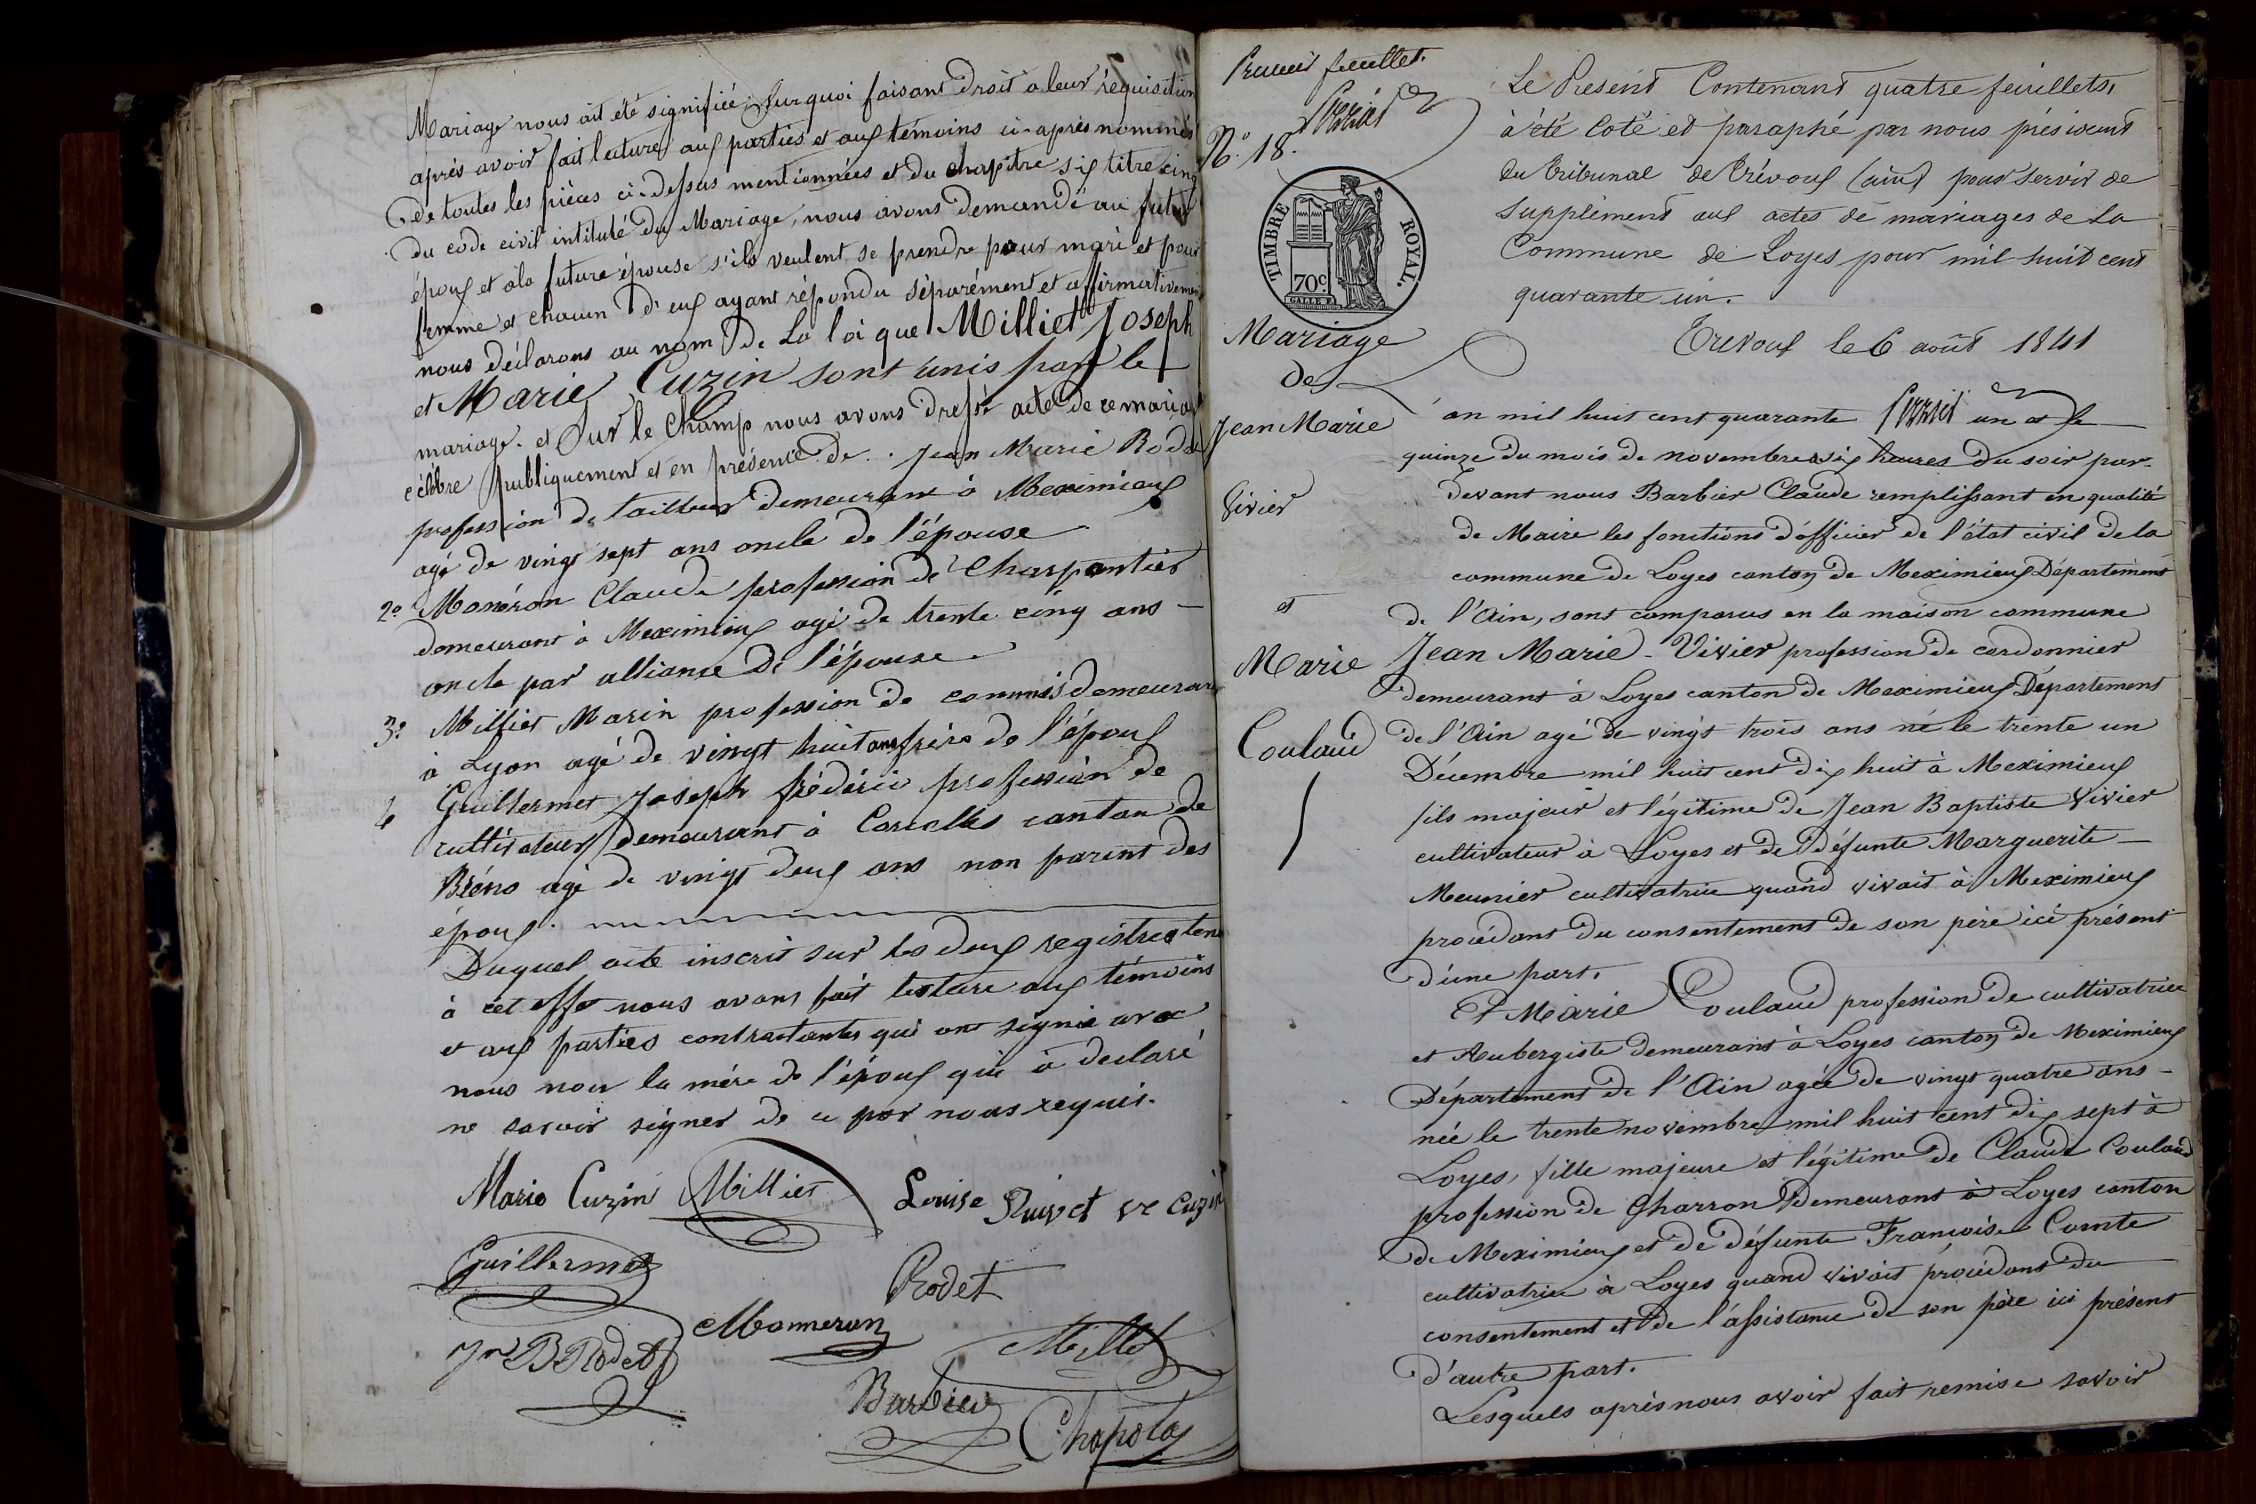 Mariage nous ait été signifiée, Surquoi faisant droit a leur réquisition
après avoir fait lecture aux parties et aux témoins ci-après nommés
de toutes les pièces ci-dessus mentionnées et du chapitre six titre cinq
du code civil intitulé du Mariage, nous avons demandé au futur
époux et ala future épouse s'ils veulent se prendre pour mari et pour
femme et chacun d'eux ayant répondu séparément et affirmativement
nous déclarons au nom de La loi que Milliet Joseph
et Marie Cuzin sont unis par le
mariage. et Sur le Champ nous avons dressé acte de ce mariage
célébre publiquement et en présence de . Jean Marie Rodet
profession de tailleur demeurant à Meximieux
agé de vingt sept ans oncle de l'épouse
2o Monéron Claude profession de Charpentier
demeurant à Meximieux agé de trente cinq ans —
oncle par alliance de l'épouse
3o Milliet Marin profession de commis demeurant
à Lyon agé de vingt huit ans frère de l'époux
4 Guillermet Joseph frédéric profession de
cultivateur demeurant à Corcelles canton de
agé de vingt deux ans non parent des
époux.
Duquel acte inscrit sur les deux registres tenu
à cet effet nous avons fait lecture aux témoins
et aux parties contractantes qui ont signé avec
nous non la mère de l'époux qui à declaré
ne savoir signer de ce par nous requis.
Marie Cuzin Milliet Louise Ruivet ve Cuzin
Guillermet Rodet
Jn B Rodet Monneron Millet
Barbier Chapolas
Premier feuillet.
No. 18.
TIMBRE ROYAL.
70c
Mariage
de
Jean Marie
Vivier
et
Marie
Couland
Le Présent Contenant quatre feuillets,
à été Coté et paraphé par nous président
du tribunal de trévoux (ain) pour servir de
supplément aux actes de mariages de La
Commune de Loyes pour mil huit cent
quarante un.
Trevoux le 6 août 1841
L'an mil huit cent quarante un et le
quinze du mois de novembre à six heures du soir par-
devant nous Barbier Claude remplissant en qualité
de Maire les fonctions d'officier de l'état civil de la
commune de Loyes canton de Meximieux Département
de l'Ain, sont comparus en la maison commune
Jean Marie - Vivier profession de cordonnier
demeurant à Loyes canton de Meximieux Département
de l'Ain agé de vingt trois ans né le trente un
Décembre mil huit cent dix huit à Meximieux
fils majeur et légitime de Jean Baptiste Vivier
cultivateur à Loyes et de défunte Marguerite —
Meunier cultivatrice quand vivait à Meximieux
procédant du consentement de son père ici présent
d'une part.
Et Marie Couland profession de cultivatrice
et Aubergiste demeurant à Loyes canton de Meximieux
Département de l'Ain agée de vingt quatre ans -
née le trente novembre mil huit cent dix sept à
Loyes, fille majeure et légitime de Claude Couland
profession de Charron Demeurant à Loyes canton
de Meximieux et de défunte Francoise Comte
cultivatrice à Loyes quand vivait procédant du
consentement et de l'assistance de son père ici présent
d'autre part.
Lesquels après nous avoir fait remise savoir